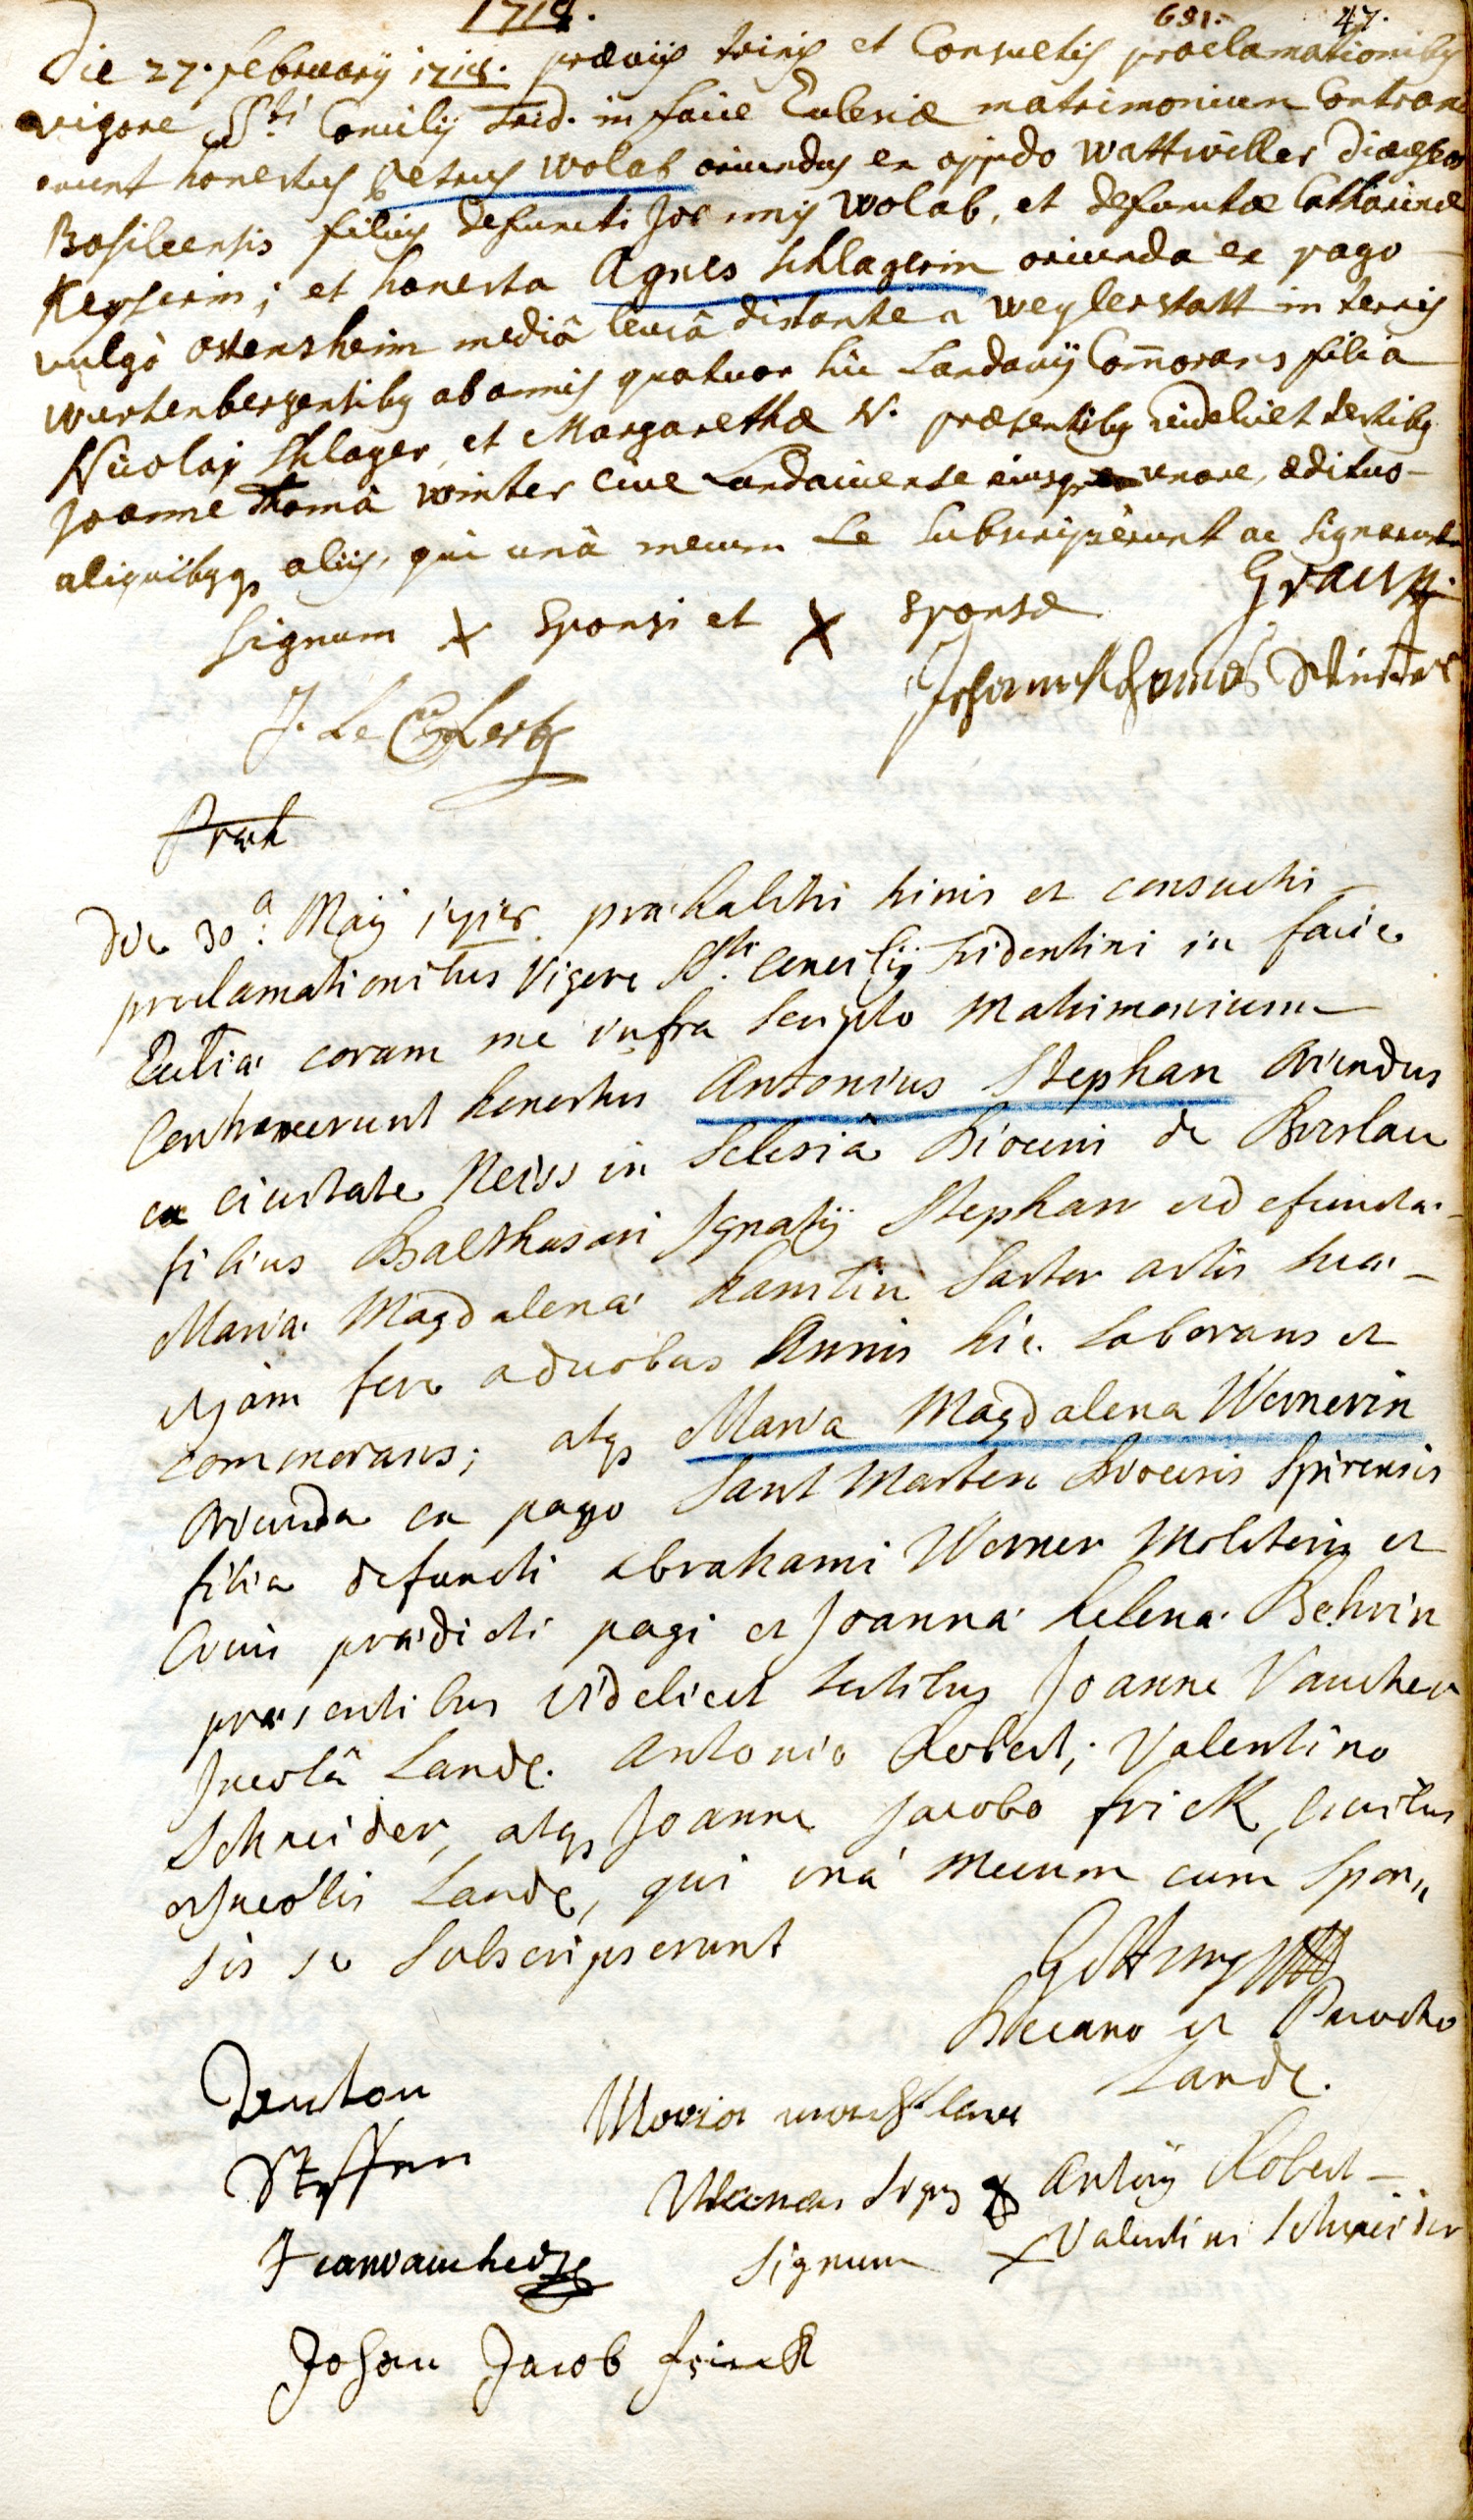 1718. 681. 47.
Die 27. februarÿ 1718. præviis trinis et Consuetis proclamationibus
vigore SSti Concilÿ Trid. in facie Eclesiæ matrimonium Contrax
erunt honestus Petrus Wolab oriundus ex oppido Wattwiller Diæcesos
Basileensis filius defuncti Joannis Wolab, et defunctæ Catharinæ
Keyserin; et honesta Agnes Schlagerin oriunda ex pago
vulgò Ostensheim mediâ leucâ distante a Weylerstatt in terris
Wurtenbergensibus ab annis quatuor hic Landavÿ Com̄orans filia
Nicolai Schlager, et Margarethæ N. præsentibus videlicet testibus
Joanne Thomâ Winter cive Landaviense eiusque uxore, ædituo
aliquibusque aliis, qui unà mecum se subscripserunt ac signarunt
signum X sponsi et X sponsæ
J. Le Clerby
Johann Thomas Winter
Die 30a: Maÿ 1718 præhabitis trinis et consuetis
proclamationibus Vigore SSti. Concilÿ Tridentini in facie
Ecclīa coram me infra scripto Matrimonium
Contraxerunt honestus Antonius Stephan Oriundus
ex civitate Neiss in Silesiâ Diocesis de Breslau
filius Balthasari Ignatÿ Stephan et defuncta
Maria Magdalena Sartor artis sua
etjam fere a duobus Annis hic Laborans et
commorans; atqs Maria Magdalena Wernerin
Oriunda ex pago Sant Marten Diocesis Spirensis
filia defuncti Abrahami Werner Molitoris et
Civis prædicti pagi et Joanna Helena Behrin
præsentibus videlicet testibus Joanne Vaucher
Incolâ Landc. Antonio Robert; Valentino
Schneider, atqs Joanne Jacobo Frick, civibus
et Incolis Landc, qui unà mecum cum Spon„
sis se Subscripserunt
Decano et Parocho
Landc.
Steffan
Maria
Signum X Antonÿ Robert
Jeanvaucher
Signum X Valentini Schneider
Johan Jacob frick